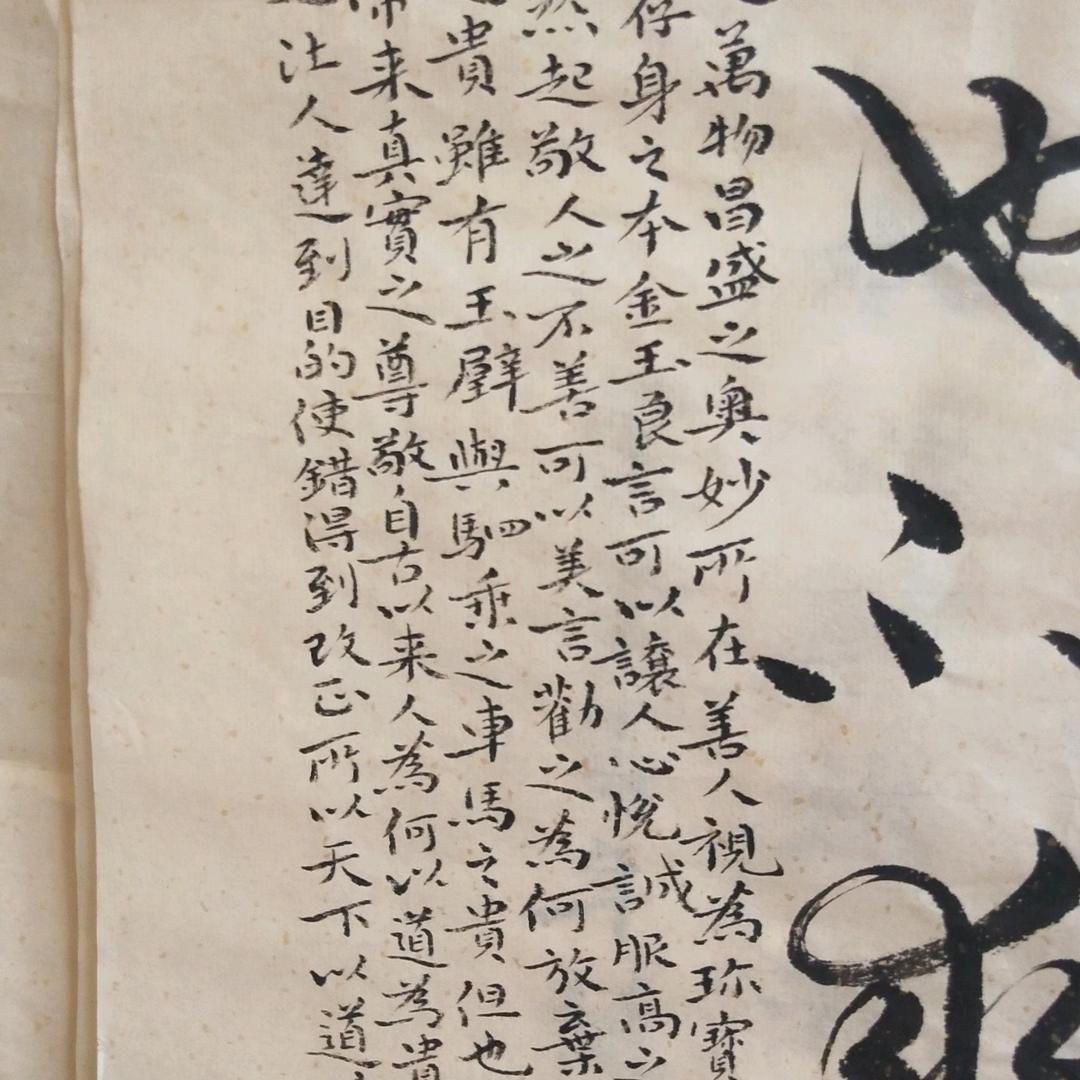 萬物昌盛之奧妙所在善人視為珎寶
存身之本金玉良言可以讓人心悅誠服高
然起敬人之不善可以美言勸之為何放棄
貴雖有玉璧與駟乘之車馬之貴但也
带来真實之尊敬自古以来人為何以道為貴
让人達到目的使錯得到改正所以天下以道